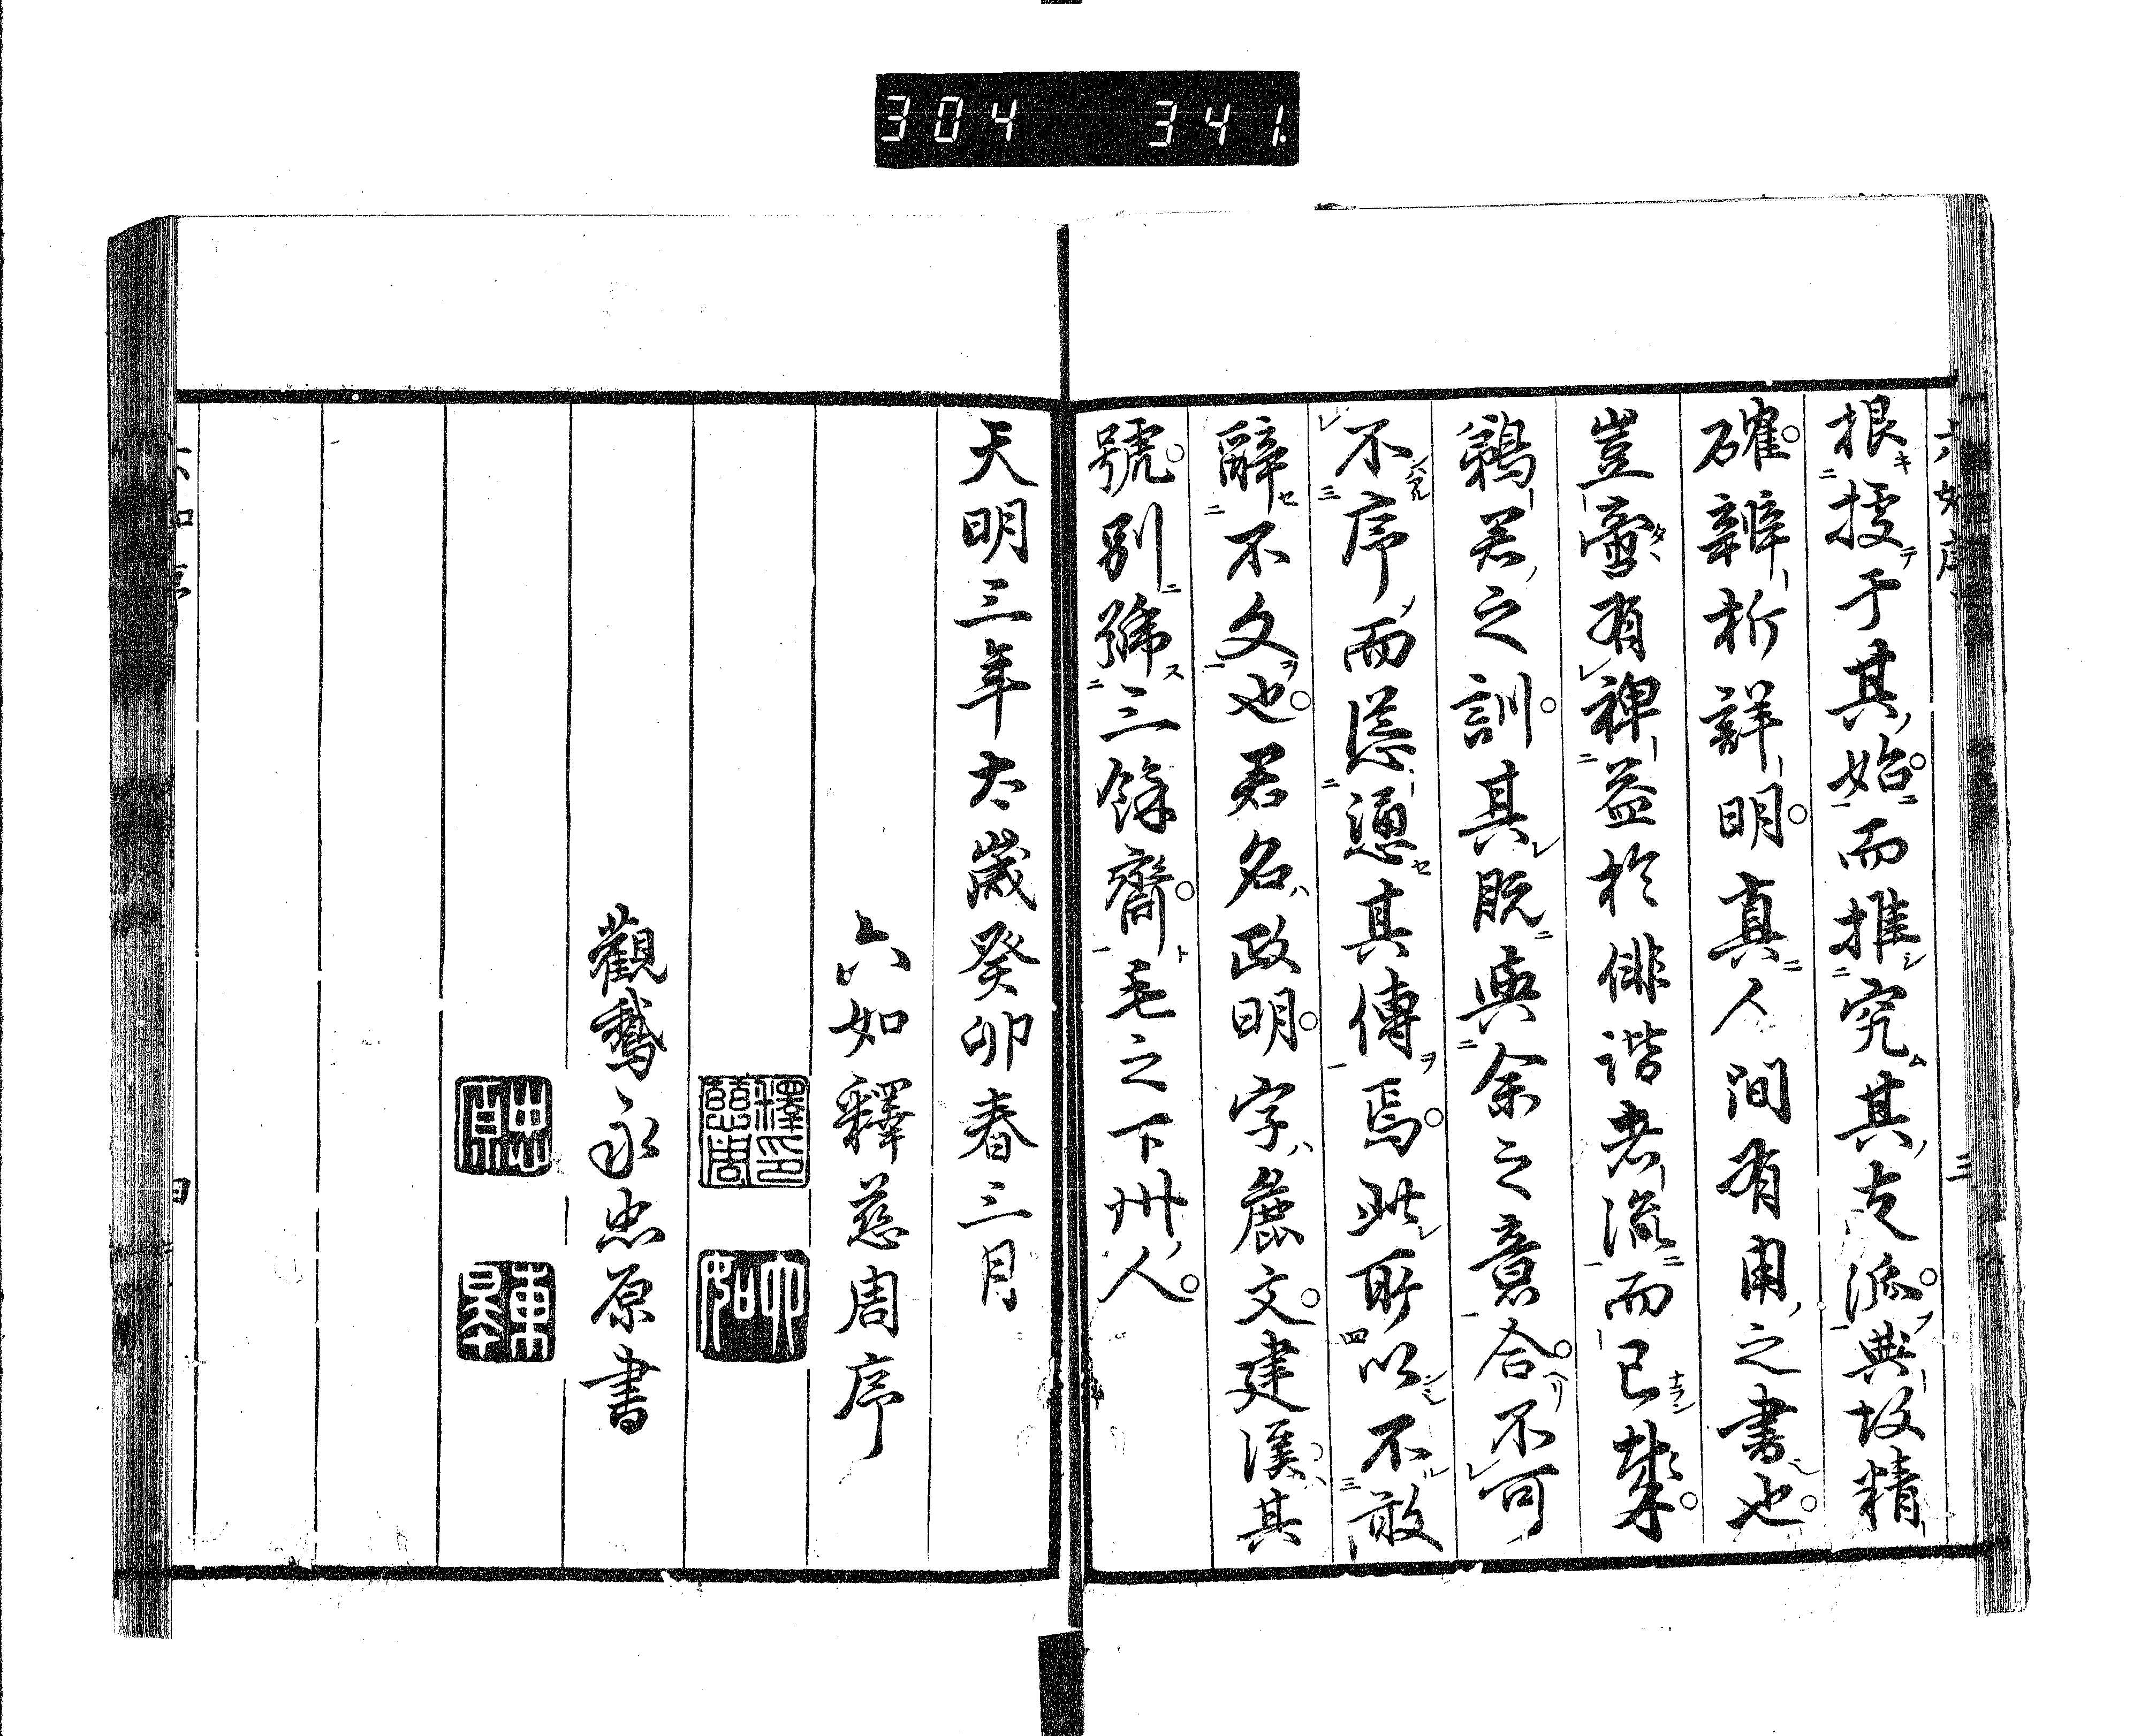 304 341.
六如序 三
根授于其始而推究其支派典故精
確辨析詳明真人間有用之書也
豈啻有裨益於俳諧者流而已哉
鵜君之訓其既與余之意合不可
不序而慫慂其傳焉此所以不敢
辭不文也君名政明字麁文建漢其
號別號三餘齋毛之下州人
天明三年太歲癸卯春三月
六如釋慈周序
釋印慈周
六如
觀鵞永忠原書
忠原
東皋